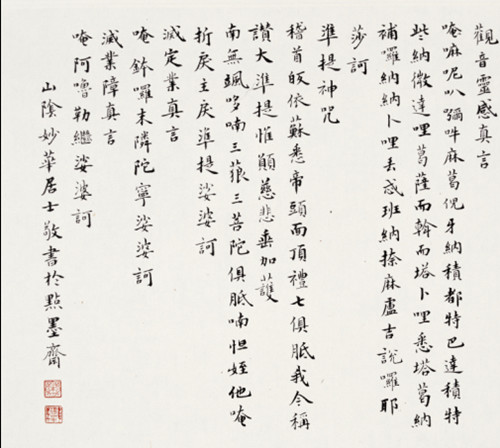 觀音靈感真言
唵嘛呢叭彌吽麻葛倪牙納積都特巴達積特
些納微達哩葛薩而斡而塔卜哩悉塔葛納
補囉納納卜哩丟忒班納捺麻盧吉說囉耶
莎訶
準提神咒
稽首皈依蘇悉帝頭面頂禮七俱胝我今稱
讚大準提惟願慈悲垂加護
南無颯哆喃三藐三菩陀俱胝喃怛姪他唵
折戾主戾準提娑婆訶
滅定業真言
唵鉢囉末隣陀寧娑婆訶
滅業障真言
唵阿嚕勒繼娑婆訶
山陰妙華居士敬書於點墨齋